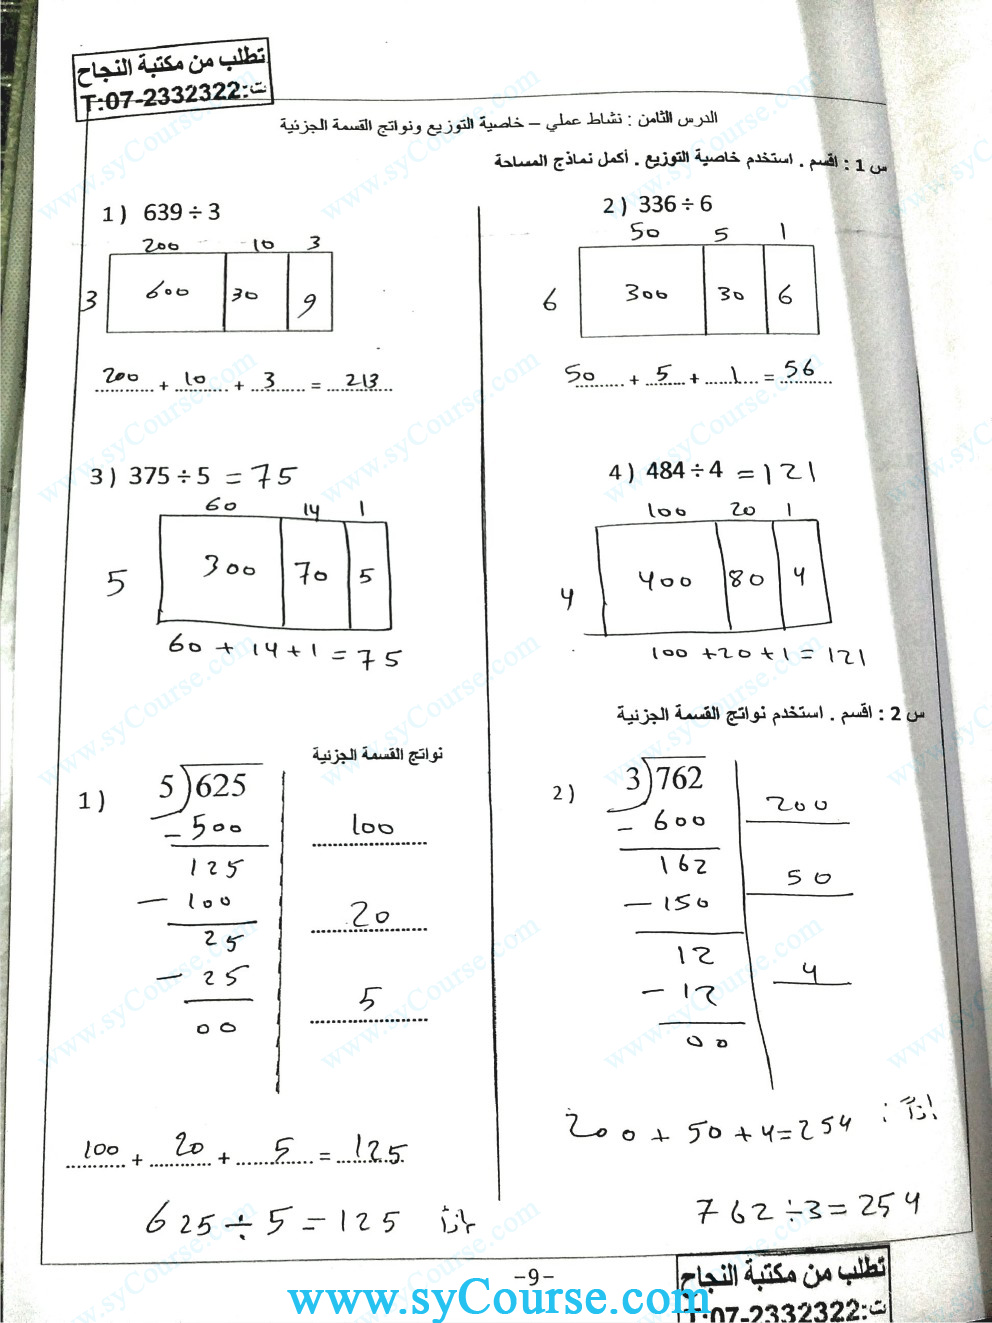 تطلب من مكتبة النجاح
ت:T:07-2332322
الدرس الثامن : نشاط عملي – خاصية التوزيع ونواتج القسمة الجزئية
س 1 : اقسم . استخدم خاصية التوزيع . أكمل نماذج المساحة
1 ) 639 ÷ 3
200 10 3
3 600 30 9
200 + 10 + 3 = 213
2 ) 336 ÷ 6
50 5 1
6 300 30 6
50 + 5 + 1 = 56
3 ) 375 ÷ 5 = 75
60 14 1
5 300 70 5
60 + 14 + 1 = 75
4 ) 484 ÷ 4 = 121
100 20 1
4 400 80 4
100 + 20 + 1 = 121
س 2 : اقسم . استخدم نواتج القسمة الجزئية
نواتج القسمة الجزئية
1 )
5 625
- 500 100
125
- 100 20
25
- 25 5
00
100 + 20 + 5 = 125
625 ÷ 5 = 125 إذاً
2 )
3 762
- 600 200
162
- 150 50
12
- 12 4
00
إذاً :
200 + 50 + 4 = 254
762 ÷ 3 = 254
-9-
www.syCourse.com
تطلب من مكتبة النجاح
ت:T:07-2332322